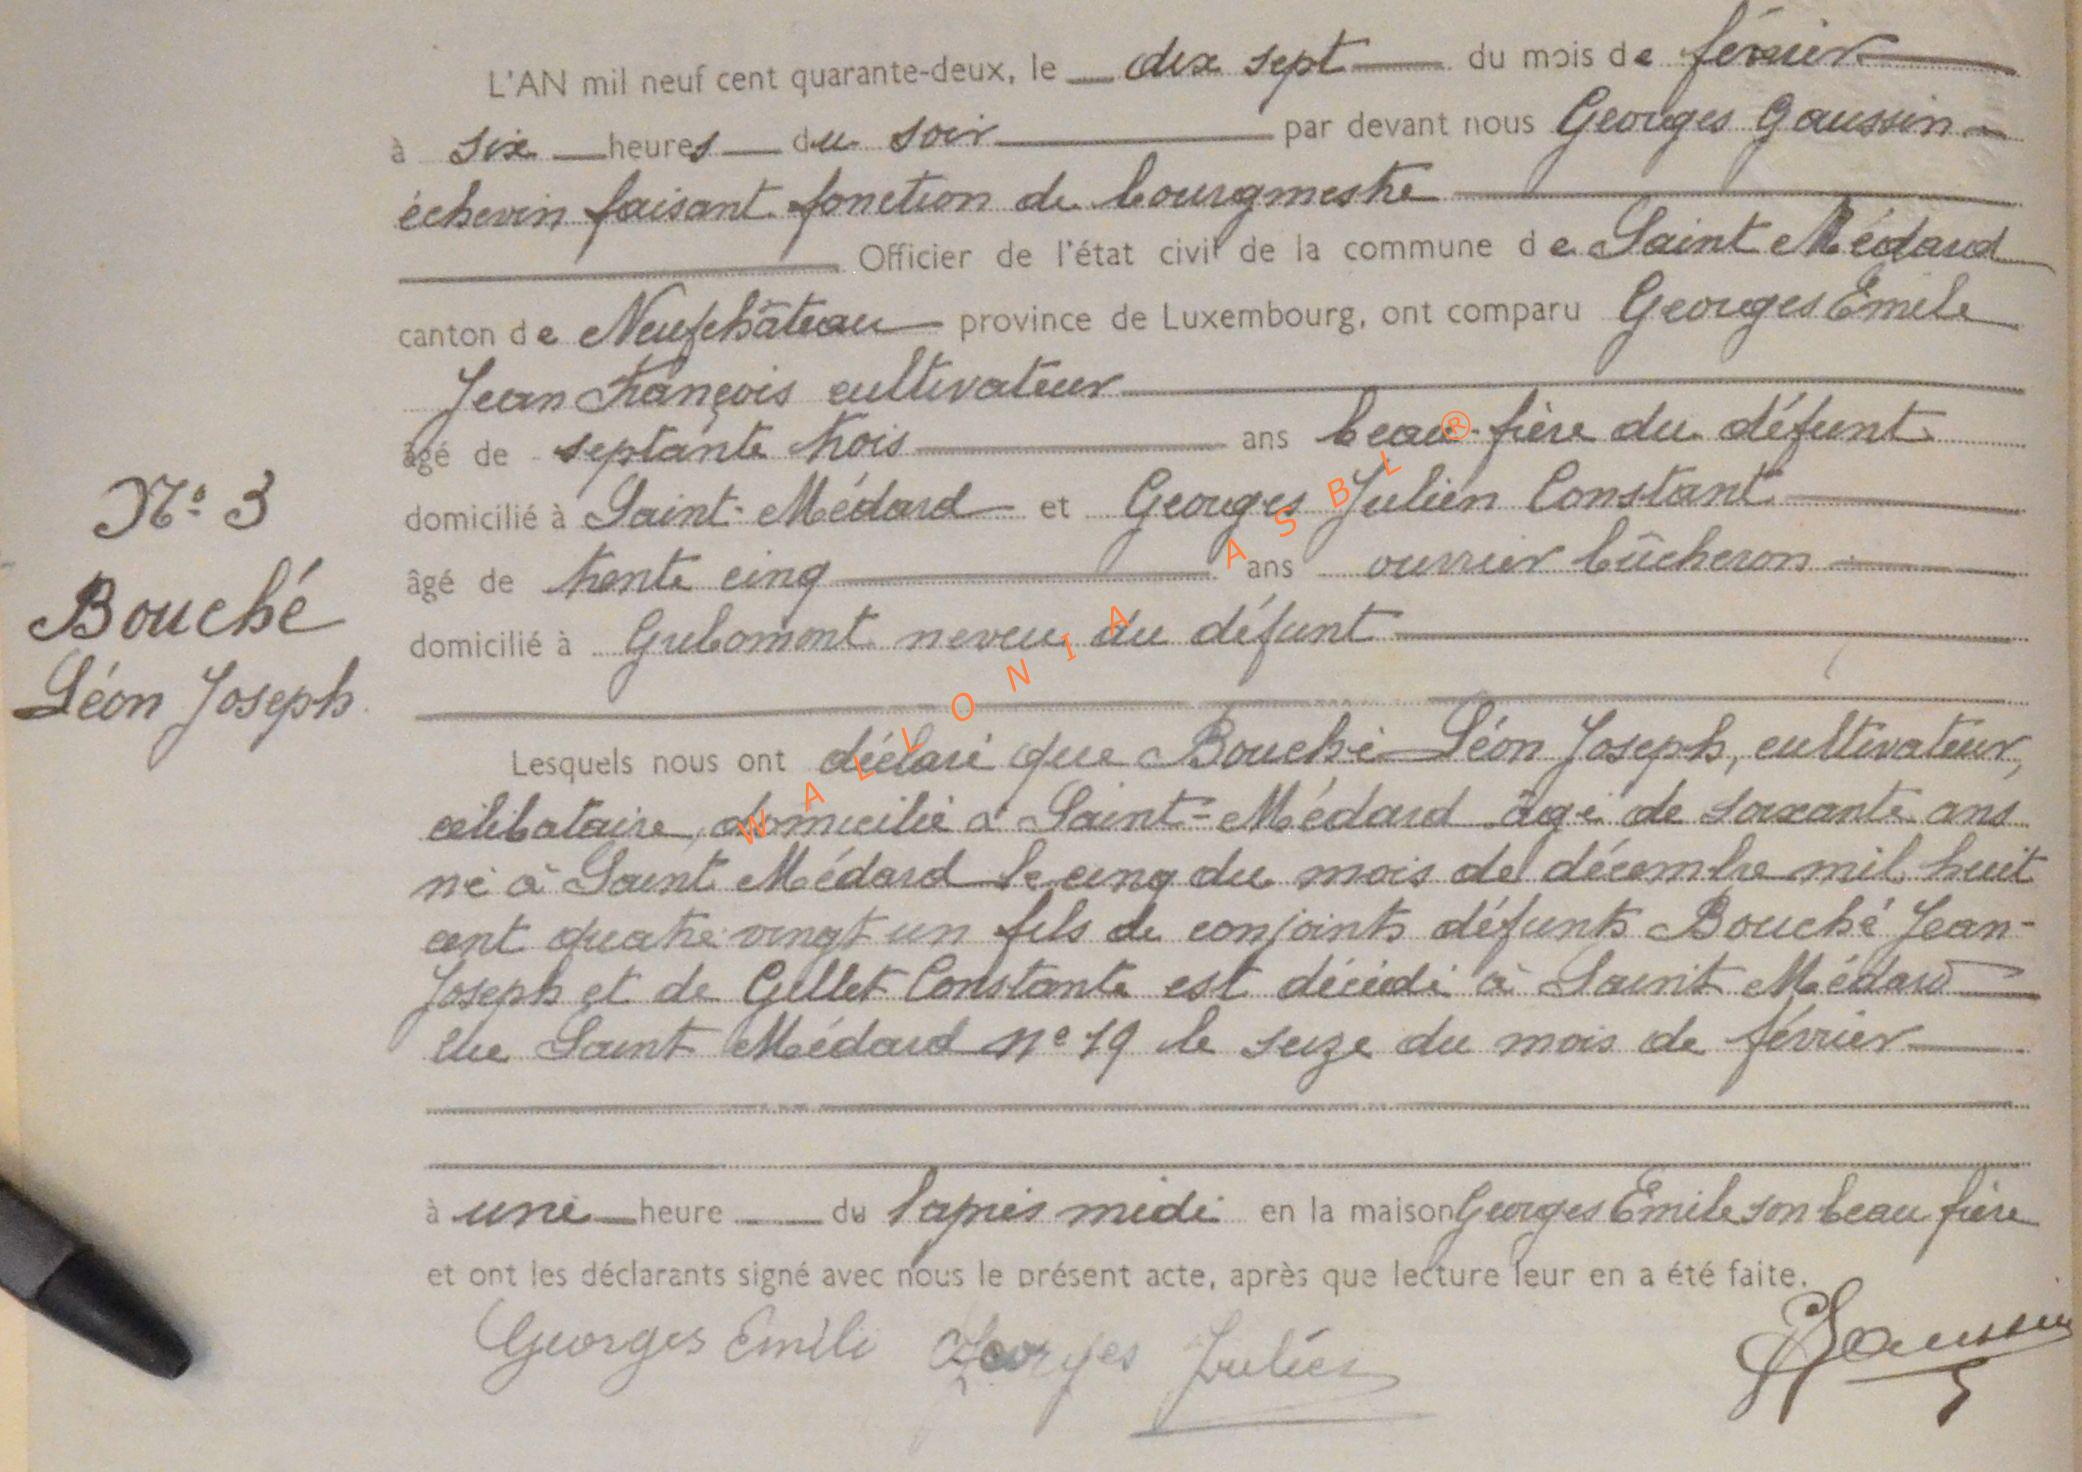 L'AN mil neuf cent quarante-deux, le dix sept du mois de février
à six heures du soir par devant nous Georges Gaussin
échevin faisant fonction de bourgmestre
Officier de l'état civil de la commune de Saint Médard
canton de Neufchâteau province de Luxembourg, ont comparu Georges Emile
Jean François cultivateur
âgé de septante trois ans beau-frère du défunt
domicilié à Saint-Médard et Georges Julien Constant
âgé de trente cinq ans ouvrier bûcheron
domicilié à Gribomont neveu du défunt
N° 3
Bouché
Léon Joseph
Lesquels nous ont déclaré que Bouché Léon Joseph, cultivateur,
célibataire, domicilié à Saint-Médard âgé de soixante ans
né à Saint Médard le cinq du mois de décembre mil huit
cent quatre vingt un fils de conjoints défunts Bouché Jean-
Joseph et de Gillet Constante est décédé à Saint Médard
rue Saint Médard n° 19 le seize du mois de février
à une heure du l'après midi en la maison Georges Emile son beau frère
et ont les déclarants signé avec nous le présent acte, après que lecture leur en a été faite.
Georges Emile Georges Julien GGaussin
WALLONIA ASBL ®